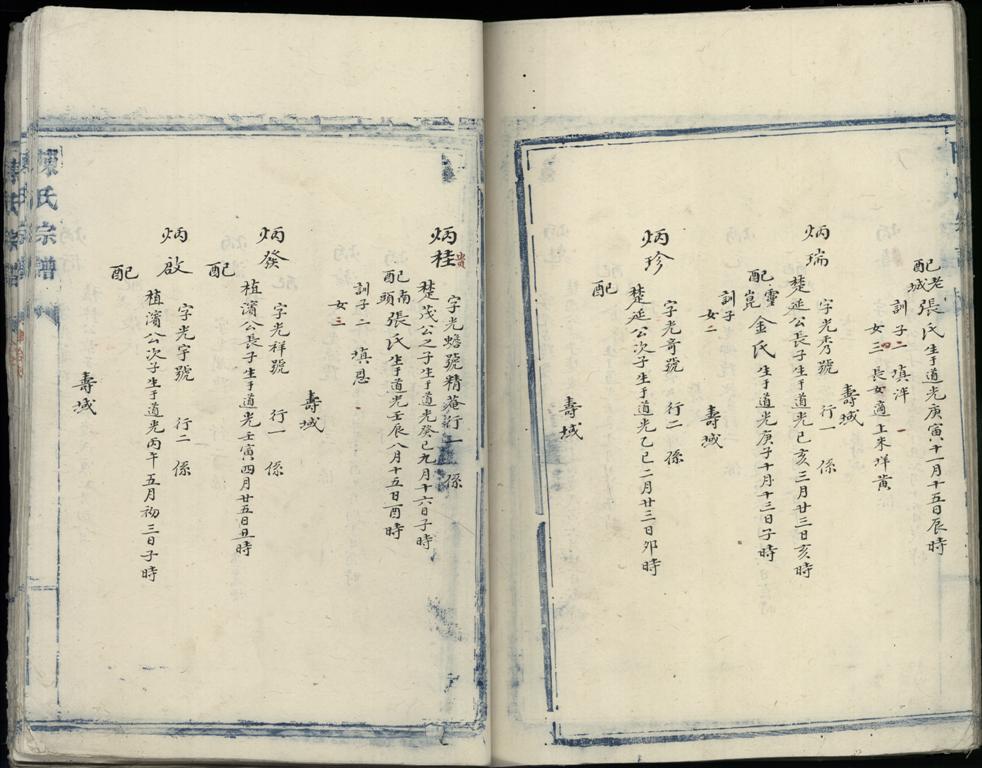 配老城張氏生于道光庚寅十一月十五日辰時
訓子二 填洋 一
女三 長女適上米垟黃
壽域
炳瑞 字光秀號 行一 係
楚延公長子生于道光己亥三月廿三日亥時
配靈崑金氏生于道光庚子十月十三日子時
訓子
女二
壽域
炳珍 字光奇號 行二 係
楚延公次子生于道光乙巳二月廿三日卯時
配
壽域
炳桂 字光蟾號精菴行一 係
楚茂公之子生于道光癸巳九月十六日子時
配南頭張氏生于道光壬辰八月十五日酉時
訓子二 填恩
女三
壽域
炳發 字光祥號 行一 係
植濱公長子生于道光壬寅四月廿五日丑時
配
炳啟 字光宇號 行二 係
植濱公次子生于道光丙午五月初三日子時
配
壽域
陳氏宗譜